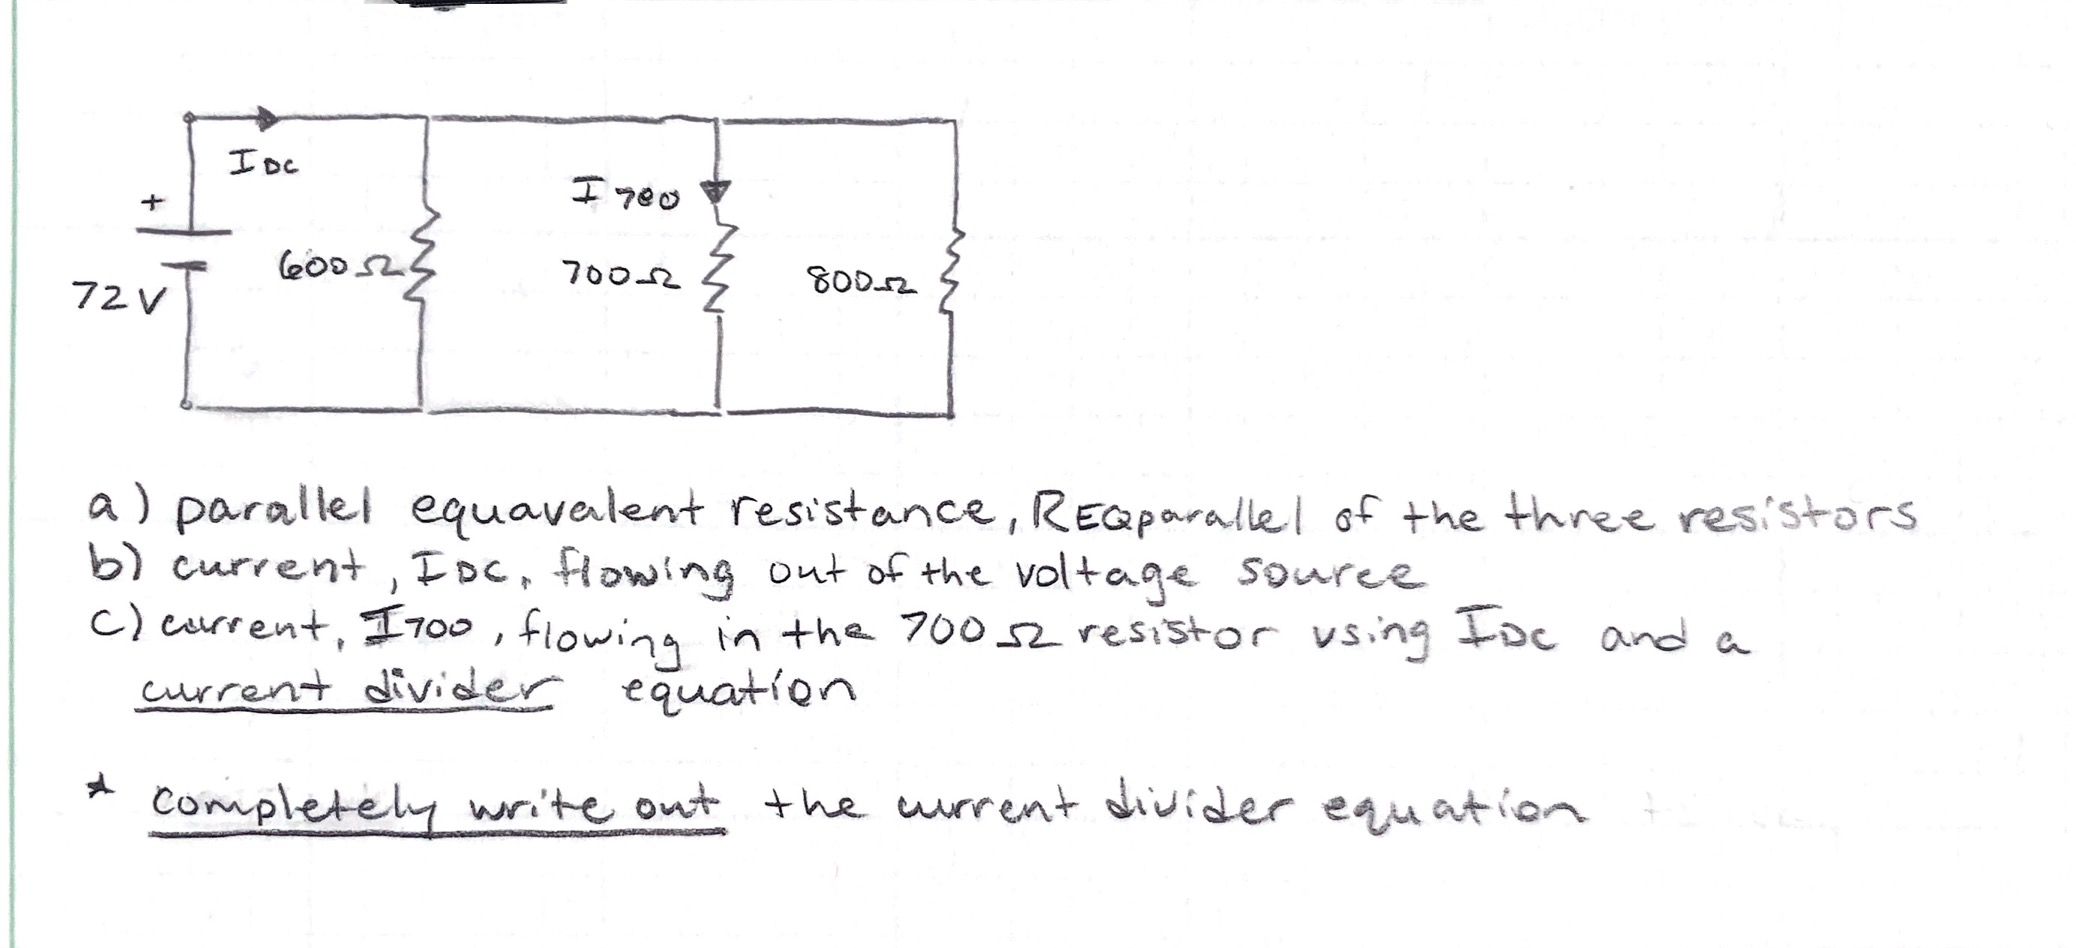 IDC
+
I700
600Ω
700Ω
800Ω
72V
a) parallel equavalent resistance, REQparallel of the three resistors
b) current, IDC, flowing out of the voltage source
c) current, I700, flowing in the 700Ω resistor using IDC and a
current divider equation
* completely write out the current divider equation